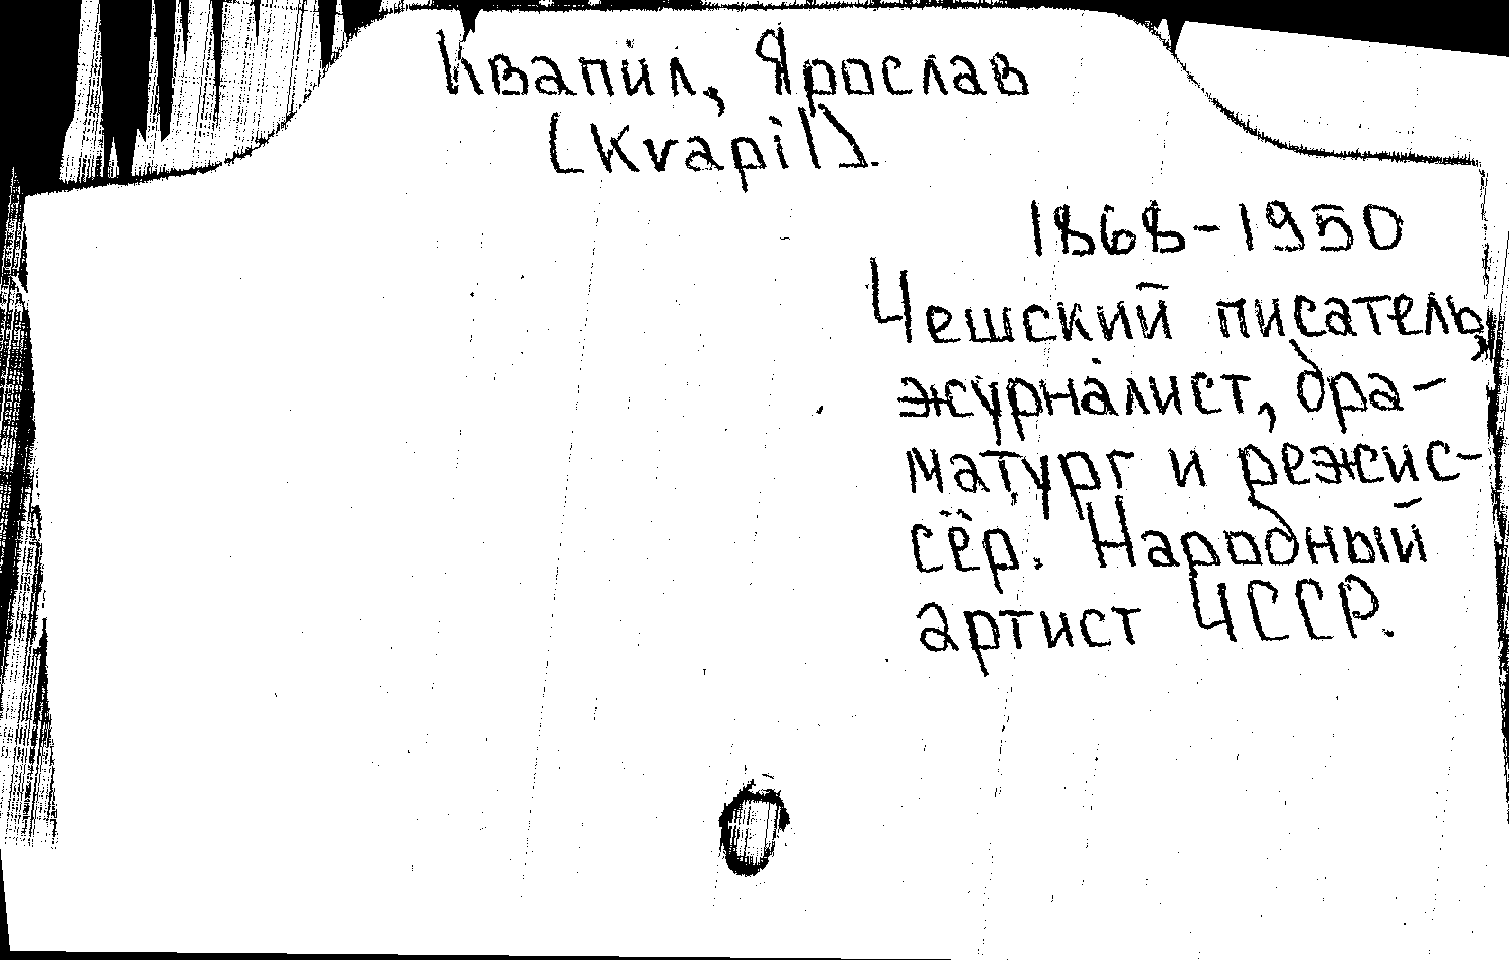 Квапил, Ярослав
[Kvapil].
1868-1950
Чешский писатель,
журналист, дра-
матург и режис-
сёр. Народный
артист ЧССР.